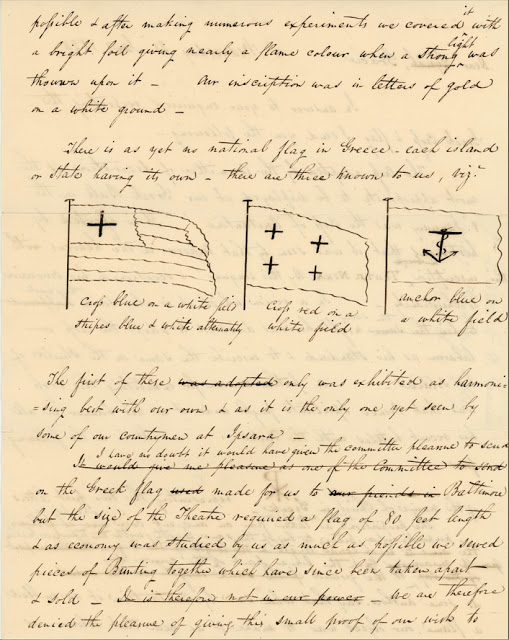 it
possible & after making numerous experiments we covered with
light
a bright foil giving nearly a flame colour when a strong was
thrown upon it – Our inscription was in letters of gold
on a white ground –
There is as yet no national flag in Greece – each island
or State having its own – there are three known to us, viz.
cross blue on a white field
stripes blue & white alternately
cross red on a
white field
anchor blue on
a white field
The first of these was adopted only was exhibited as harmoni-
=sing best with our own & as it is the only one yet seen by
some of our countrymen at Ipsara –
I have no doubt it would have given the committee pleasure to send
It would give me pleasure as one of the Committee to send
on the Greek flag used made for us to our friends in Baltimore
but the size of the Theatre required a flag of 80 feet length
& as economy was studied by us as much as possible we sewed
pieces of Bunting together which have since been taken apart
& sold – It is therefore not in our power – we are therefore
denied the pleasure of giving this small proof of our wish to